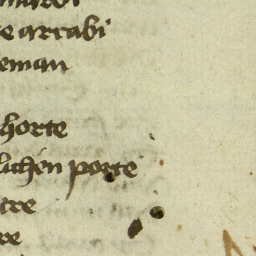 e arcabi
eman
horte
lichen porte
tre
re